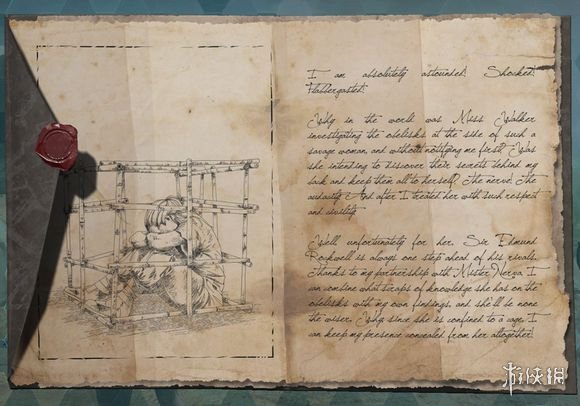 I am absolutely astounded! Shocked!
Flabbergasted!
Why in the world was Miss Walker
investigating the obelisks at the side of such a
savage woman, and without notifying me first? Was
she intending to discover their secrets behind my
back and keep them all to herself? The nerve! The
audacity! And after I treated her with such respect
and civility.
Well unfortunately for her, Sir Edmund
Rockwell is always one step ahead of his rivals.
Thanks to my partnership with Mister Nerva, I
can combine what scraps of knowledge she has on the
obelisks with my own findings, and she'll be none
the wiser. Why, since she is confined to a cage, I
can keep my presence concealed from her altogether!
游侠网